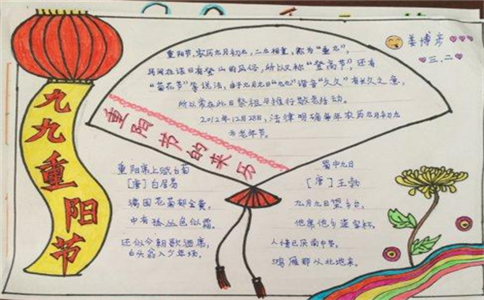 九九重阳节
重阳节,农历九月初九,二九相重,称为“重九”,
民间在该日有登山的风俗,所以又称“登高节”。还有
“菊花节”等说法。由于九月九日“九九”谐音“久久”,有长久之意,
所以常在此日祭祖与推行敬老活动。
2012年12月28日,法律明确每年农历九月初九
为老年节。
重阳节的来历
姜博
三、二
重阳席上赋白菊
[唐]白居易
满园花菊郁金黄,
中有孤丛色似霜。
还似今朝歌酒席,
白头翁入少年场。
蜀中九日
[唐]王勃
九月九日望乡台,
他席他乡送客杯。
人情已厌南中苦,
鸿雁那从北地来。